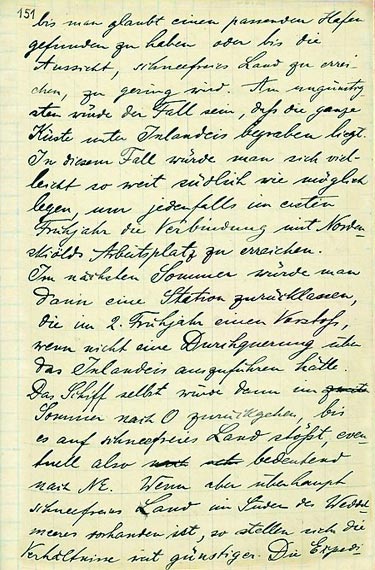 151
bis man glaubt einen passenden Hafen
gefunden zu haben oder bis die
Aussicht, schneefreies Land zu errei-
chen, zu gering wird. Am ungünstig
sten würde der Fall sein, daß die ganze
Küste unter Inlandeis begraben liegt.
In diesem Fall würde man sich viel-
leicht so weit südlich wie möglich
legen, um jedenfalls im ersten
Frühjahr die Verbindung mit Norden-
skiölds Arbeitsplatz zu erreichen.
Im nächsten Sommer würde man
dann eine Station zurücklassen,
die im 2. Frühjahr einen Vorstoß,
wenn nicht eine Durchquerung über
das Inlandeis auszuführen hätte.
Das Schiff selbst würde dann im zweite
Sommer nach O zurückgehen, bis
es auf schneefreies Land stößt, even
tuell also bedeutend
nach NE. Wenn aber überhaupt
schneefreies Land im Süden des Weddel
meeres vorhanden ist, so stellen sich die
Verhältnisse viel günstiger. Die Expedi-